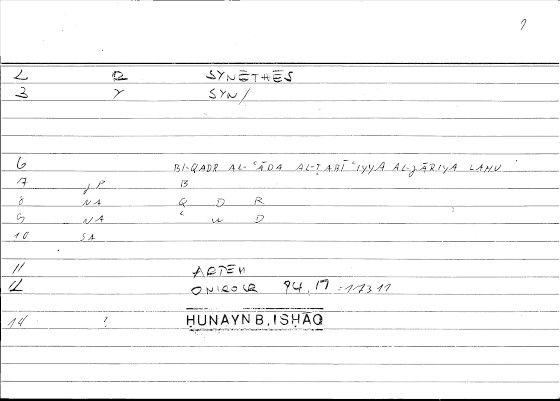 2 R SYNĒTHĒS
3 Y SYN/
6 BI-QADR AL-ʿĀDA AL-ṬABĪʿIYYA AL-ǦĀRIYA LAHU
7 jP B
8 NA Q D R
9 NA ʿ W D
10 SA
11 ARTEM
12 ONIROCR 94,17 :173 11
14 ! ḤUNAYN B. ISḤĀQ